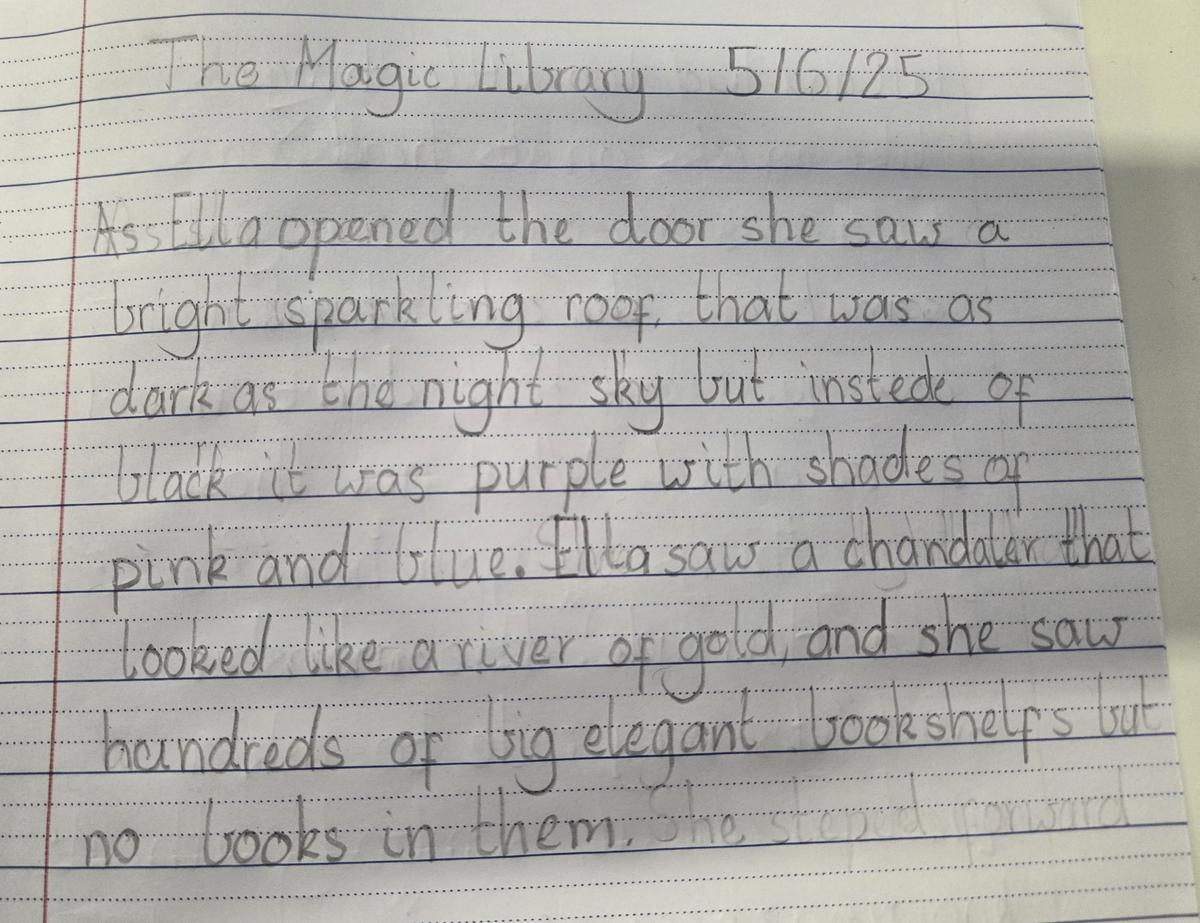 The Magic Library 5/6/25
As Ella opened the door she saw a
bright sparkling roof, that was as
dark as the night sky but instede of
black it was purple with shades of
pink and blue. Ella saw a chandaler that
looked like a river of gold, and she saw
hundreds of big elegant bookshelfs but
no books in them. She steped forward